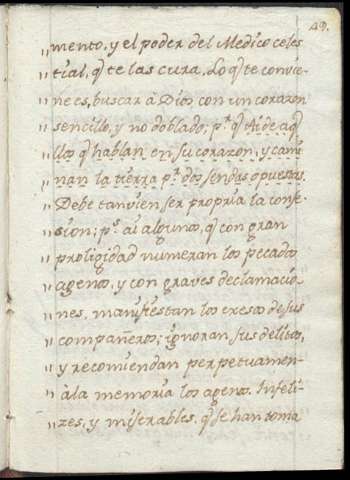 49.
„ mento, y el poder del Medico celes
„ tial, q̃ te las cura. Lo q̃ te convie-
„ ne es, buscar à Dios con un corazon
„ sencillo, y no doblado; p.ʳ q̃ Ai de aq̃
„ llos q̃ hablan en su corazon, y cami
„ nan la tierra p.ʳ dos sendas opuestas.
„ Debe tanvien, ser propria la confe-
„ sion; p.ˢ ai algunos, q̃ con gran
„ proligidad numeran los pecados
„ agenos, y con graves declamacio-
„ nes, manifiestan los excesos de sus
„ compañeros; ignoran sus delitos,
„ y recomiendan perpetuamen-
„ à la memoria los agenos. Infeli-
„ zes, y miserables, q̃ se han toma